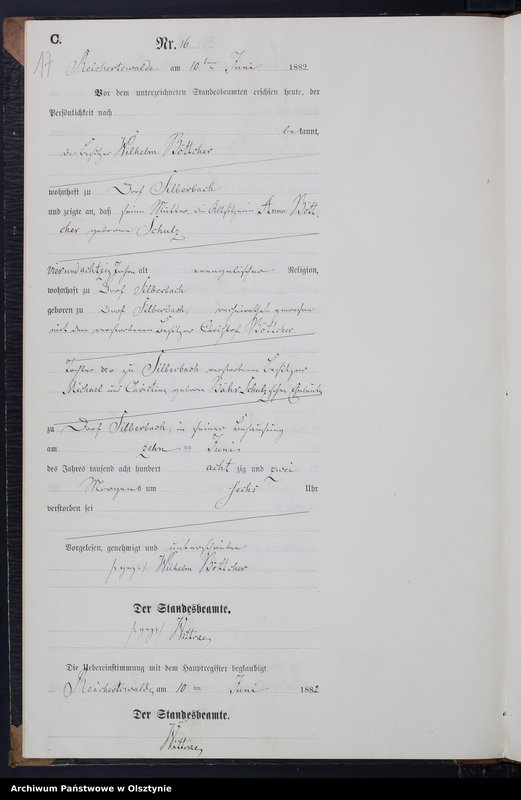 C.
Nr. 16
17
Reichertswalde am 10ten Juni 1882.
Vor dem unterzeichneten Standesbeamten erschien heute, der
Persönlichkeit nach
bekannt,
der Besitzer Wilhelm Böttcher
wohnhaft zu Dorf Silberbach
und zeigte an, daß seine Mutter, die Altsitzerin Anna Bött
cher geborene Schulz
vierundachtzig Jahre alt evangelischer Religion,
wohnhaft zu Dorf Silberbach
geboren zu Dorf Silberbach, verheirathet gewesen
mit dem verstorbenen Besitzer Christof Böttcher
Tochter der zu Silberbach verstorbenen Besitzer
Michael und Christine geborene Schulzschen Eheleute
zu Dorf Silberbach, in seiner Behausung
am zehn ten Juni
des Jahres tausend acht hundert achtzig und zwei
Morgens um sechs Uhr
verstorben sei
Vorgelesen, genehmigt und unterschrieben
/:gez:/ Wilhelm Böttcher
Der Standesbeamte.
/:gez:/
Die Uebereinstimmung mit dem Hauptregister beglaubigt.
Reichertswalde, am 10 ten Juni 1882
Der Standesbeamte.
Archiwum Państwowe w Olsztynie